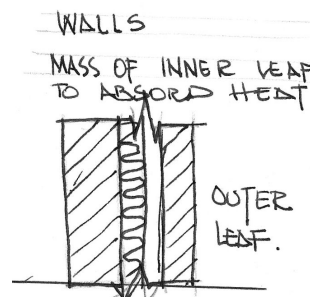 WALLS
MASS OF INNER LEAF
TO ABSORD HEAT
OUTER
LEAF.